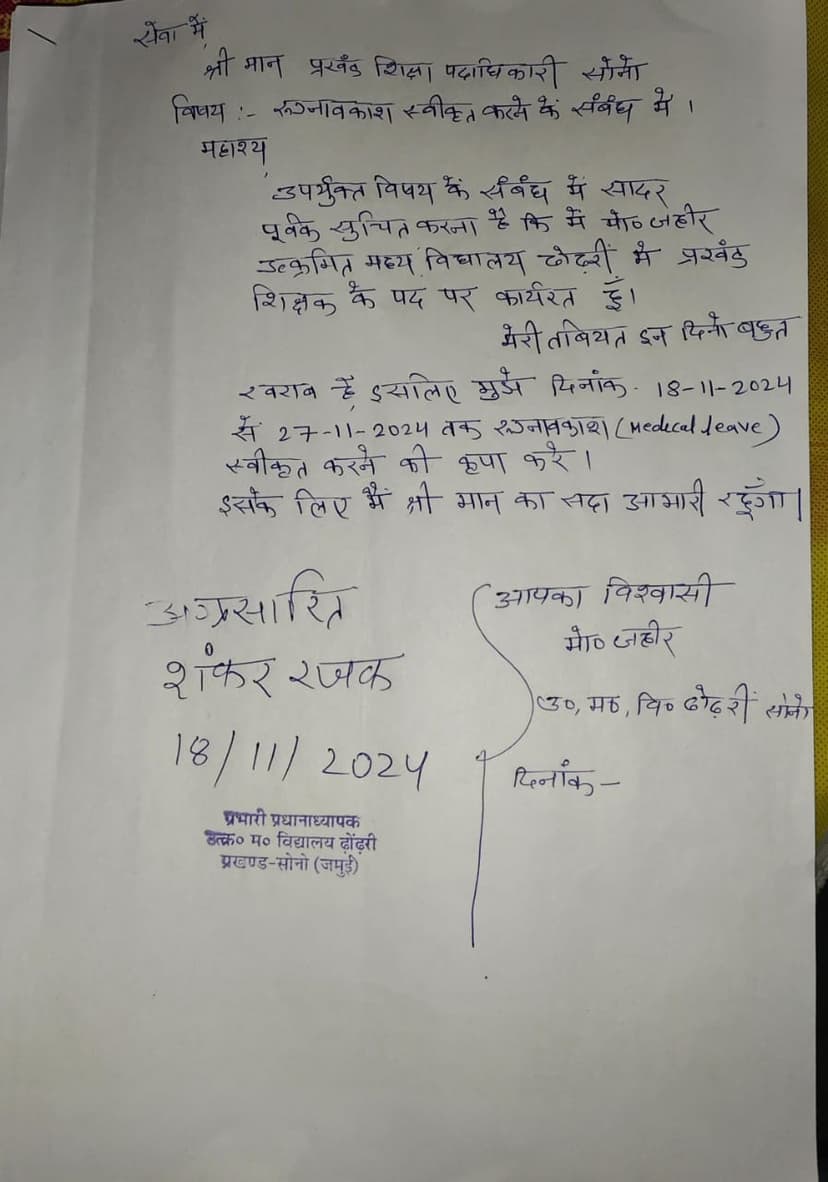 सेवा में,
श्री मान प्रखंड शिक्षा पदाधिकारी सोनो
विषय :- रूग्नावकाश स्वीकृत करने के संबंध में ।
महाश्य,
उपर्युक्त विषय के संबंध में सादर
पूर्वक सुचित करना है कि मैं मो० जहीर
उत्क्रमित मध्य विद्यालय ढोढ़री में प्रखंड
शिक्षक के पद पर कार्यरत हूँ।
मेरी तबियत इन दिनो बहुत
खराब है, इसलिए मुझे दिनांक. 18-11-2024
से 27-11-2024 तक रूग्नावकाश (Medecal leave)
स्वीकृत करने की कृपा करे ।
इसके लिए मैं श्री मान का सदा आभारी रहूँगा।
अग्रसारित
शंकर रजक
18/11/2024
प्रभारी प्रधानाध्यापक
उत्क्र० म० विद्यालय ढ़ोंढ़री
प्रखण्ड-सोनो (जमुई)
आपका विश्वासी
मो० जहीर
उ०, म०, वि० ढोढ़री सोनो
दिनांक -